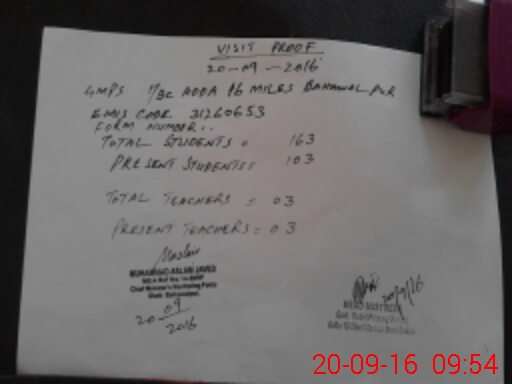 VISIT PROOF
20-09-2016
GMPS 7/BC ADDA 16 MILES BAHAWAL PUR
EMIS CODE 31260653
FORM NUMBER..
TOTAL STUDENTS = 163
PRESENT STUDENTS = 103
TOTAL TEACHERS = 03
PRESENT TEACHERS = 03
MUHAMMAD ASLAM JAVED
Chief Minister's Monitoring Force
Distt. Bahawalpur.
20 09 2016
20/9/16
HEAD
20-09-16 09:54